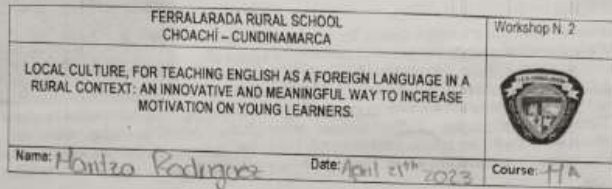 FERRALARADA RURAL SCHOOL
CHOACHÍ – CUNDINAMARCA
Workshop N. 2
LOCAL CULTURE, FOR TEACHING ENGLISH AS A FOREIGN LANGUAGE IN A
RURAL CONTEXT: AN INNOVATIVE AND MEANINGFUL WAY TO INCREASE
MOTIVATION ON YOUNG LEARNERS.
Name: Rodriguez Date: April 21th 2023 Course: